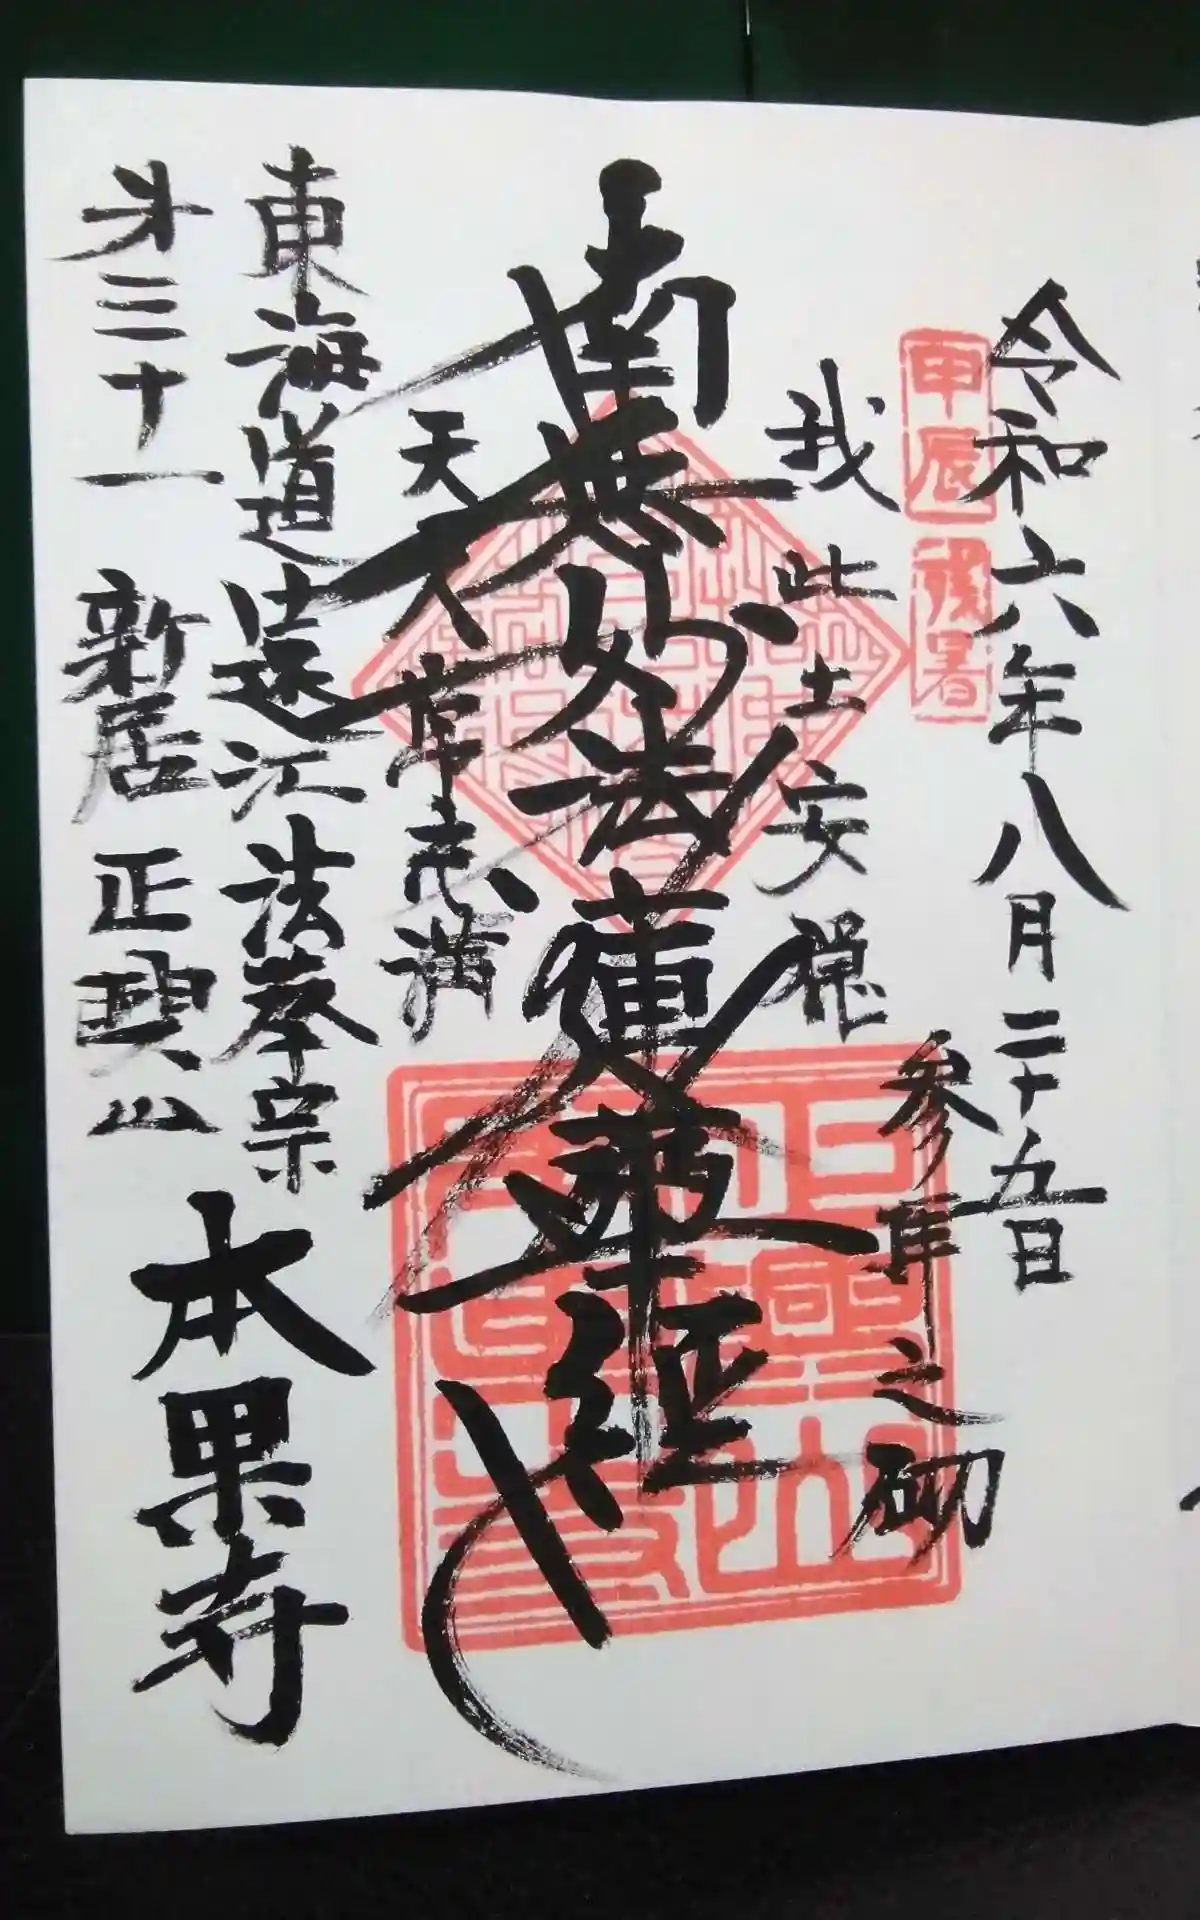 令和六年八月二十五日
甲辰
残暑
参拝之砌
我此土安穏
南無妙法蓮華経
天人常充満
東海道遠江法華宗
㐧三十一 新居 正興山 本果寺